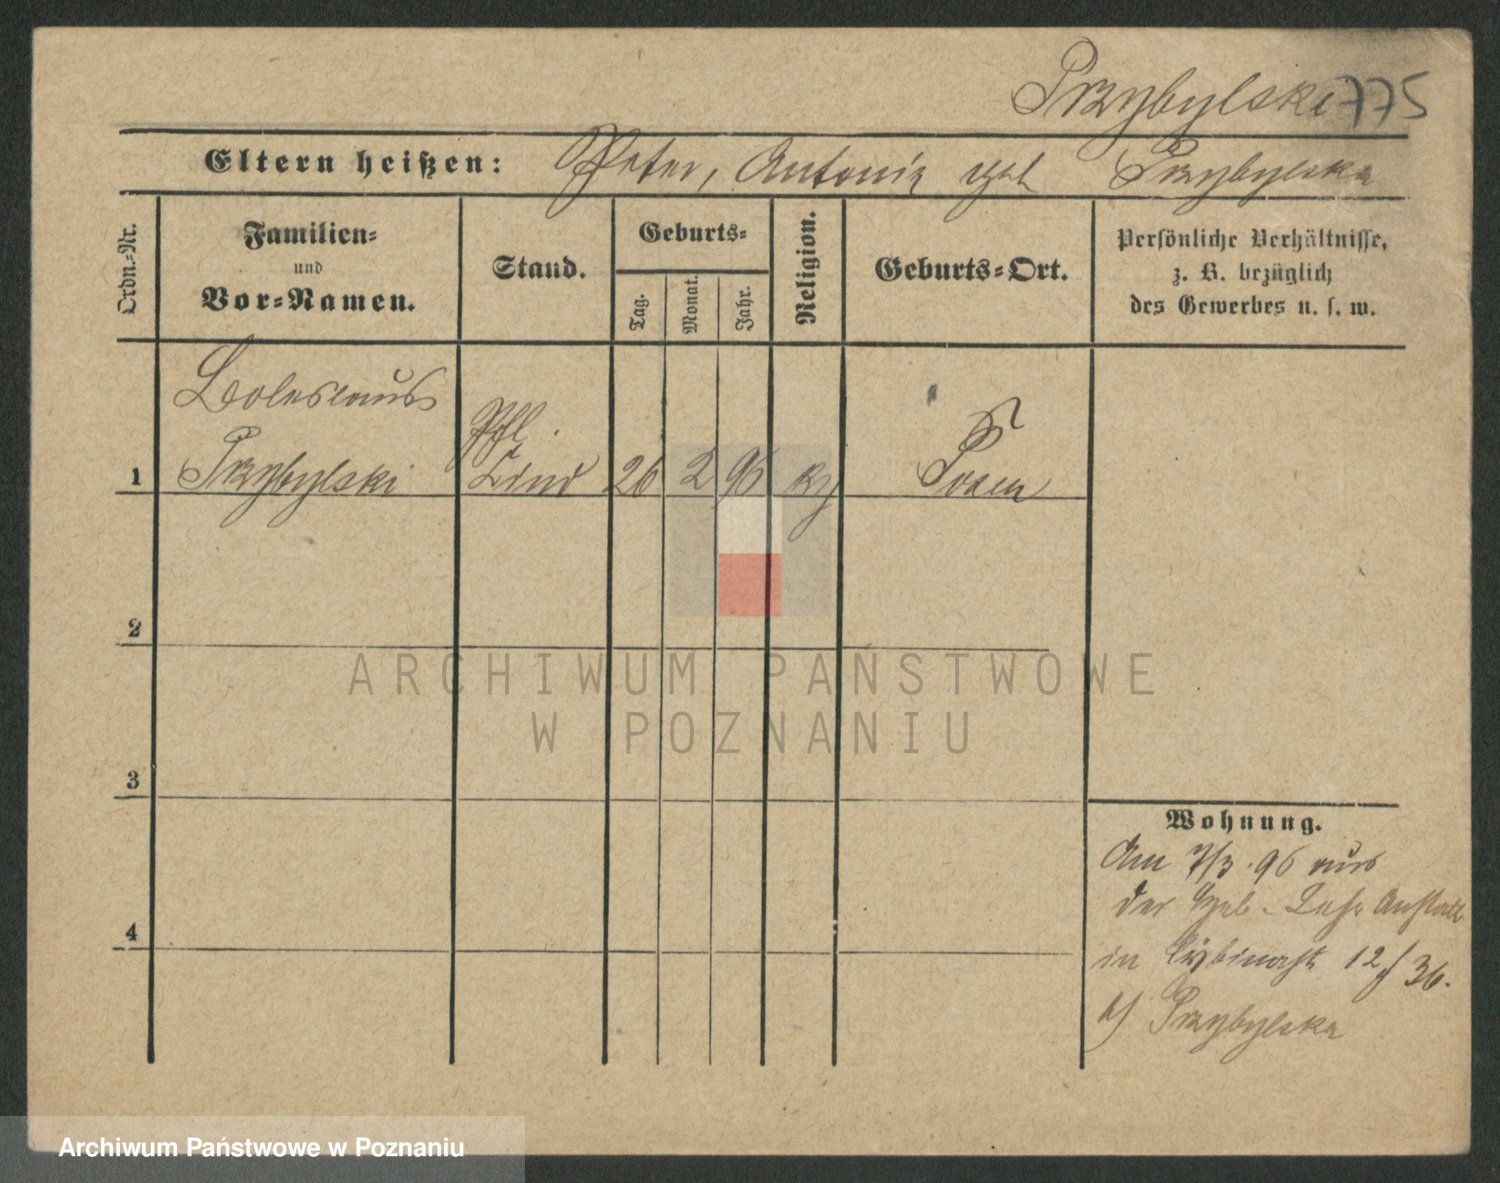 Przybylski 775
Eltern heißen: Peter, Antonie geb Przybylska
Ordn.-Nr.
Familien-
und
Vor-Namen.
Stand.
Geburts-
Tag.
Monat.
Jahr.
Religion.
Geburts-Ort.
Persönliche Verhältnisse,
z. B. bezüglich
des Gewerbes u. s. w.
Boleslaus
Pfl.
1 Przybylski Kind 26 2 96 Posen
2
3
4
Wohnung.
Am 7/3. 96 aus
der Heb-Lehr Anstalt
in 12 / 36.
b/ Przybylska
ARCHIWUM PAŃSTWOWE
W POZNANIU
Archiwum Państwowe w Poznaniu